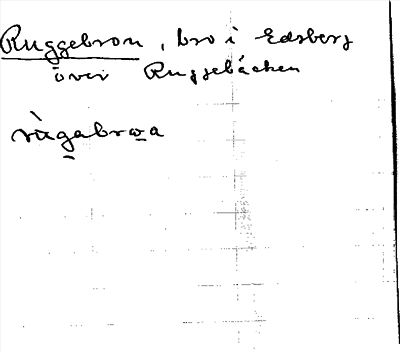 Ruggebron, bro i Edsberg
över Ruggebäcken
rùgabrωa